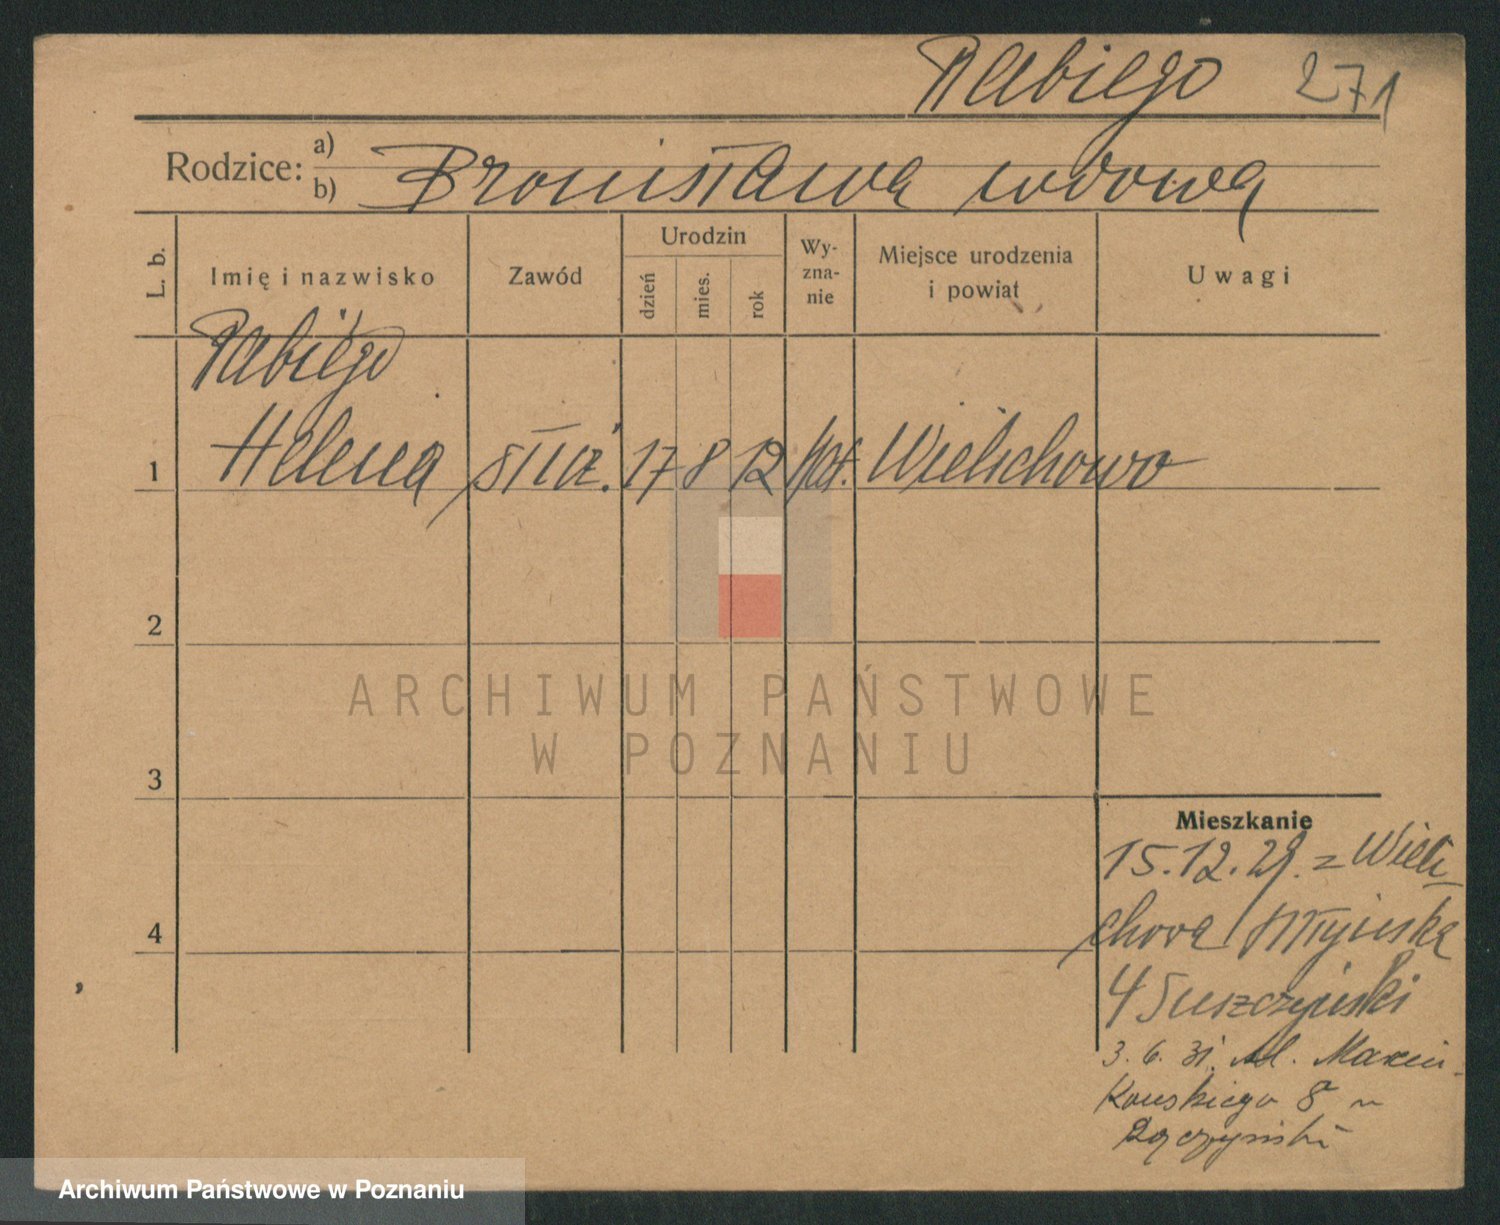 Rabiego 271
Rodzice: a)
b) Bronisława wdowa
L. b.
Imię i nazwisko
Zawód
Urodzin
dzień
mies.
rok
Wy-
zna-
nie
Miejsce urodzenia
i powiat
Uwagi
Rabiego
1 Helena służ. 17 8 12 kat. Wielichowo
2
3
4
Mieszkanie
15.12.29. z Wieli-
chowa
4 Suszczyński
3. 6. 31. Marcin-
kowskiego 8
ARCHIWUM PAŃSTWOWE
W POZNANIU
Archiwum Państwowe w Poznaniu